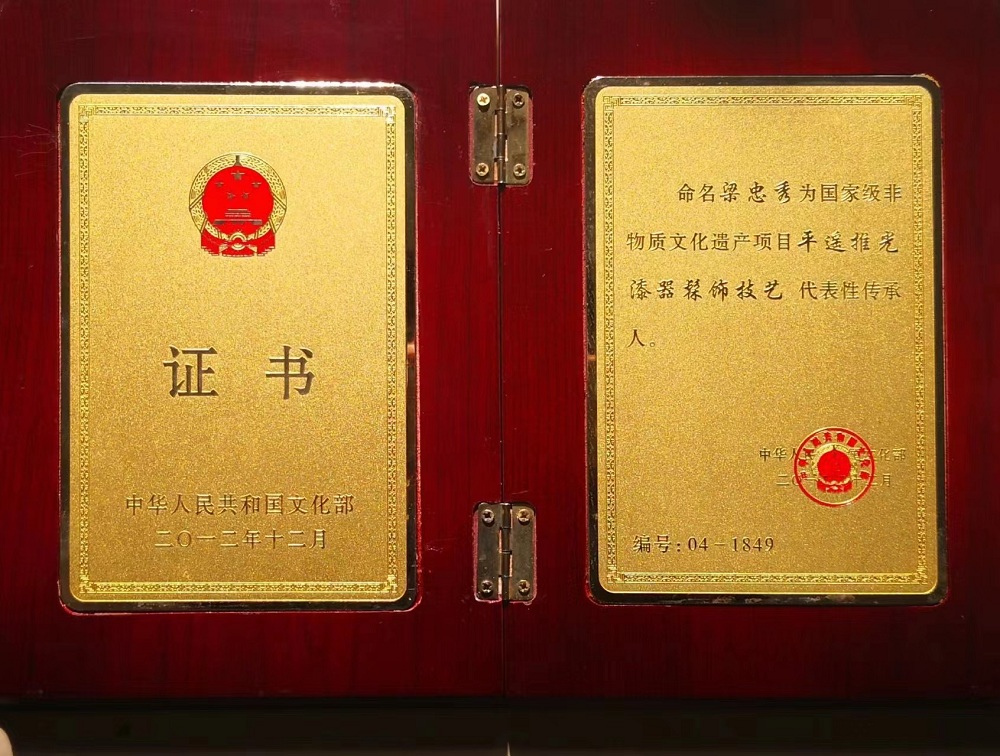 证 书
中华人民共和国文化部
二〇一二年十二月
命名梁忠秀为国家级非
物质文化遗产项目平遥推光
漆器髹饰技艺 代表性传承
人。
中华人民共和国文化部
二〇一二年十二月
编号:04-1849